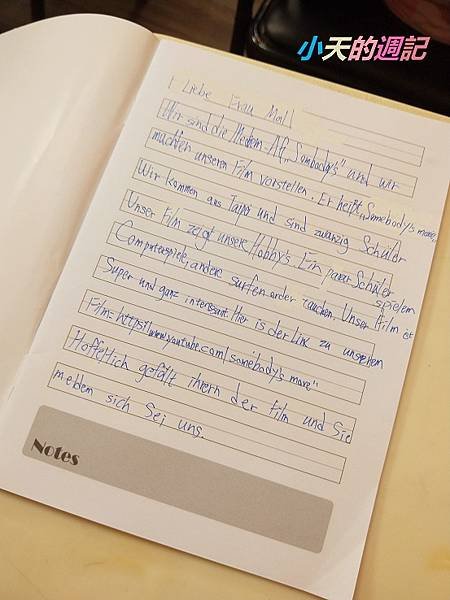 小天的週記
Liebe Frau Moll
Wir sind die Medem-AG „Sombody's" und wir
machten unseren Film vorstellen. Er heißt „Somebody's movie"
Wir kommen aus Taipei und sind zwanzig Schüler
Unser Film zeigt unsere Hobby's Ein paar Schüler spielem
Computerspiele, andere surfen order tauchen. Unser Film ist
Super und ganz interessant. Hier is der Link zu unserem
Film: https://www.youtube.com/somebody's move"
Hoffetlich gefällt ihnen der Film und Sie
meldem sich Sei uns.
Notes